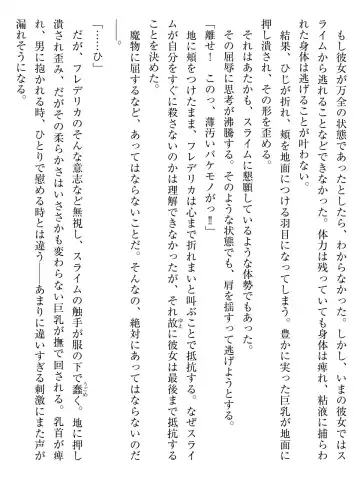 もし彼女が万全の状態であったとしたら、わからなかった。しかし、いまの彼女ではス
ライムから逃れることなどできなかった。体力は残っていても身体は痺れ、粘液に捕らわ
れた身体は逃げることが叶わない。
結果、ひじが折れ、頬を地面につける羽目になってしまう。豊かに実った巨乳が地面に
押し潰され、その形を歪める。
それはあたかも、スライムに懇願しているような体勢でもあった。
その屈辱に思考が沸騰する。そのような状態でも、肩を揺すって逃げようとする。
「離せ！　このっ、薄汚いバケモノがっ!!」
地に頬をつけたまま、フレデリカは心まで折れまいと叫ぶことで抵抗する。なぜスライ
ムが自分をすぐに殺さないのかは理解できなかったが、それ故に彼女は最後まで抵抗する
ことを決めた。
魔物に屈するなど、あってはならないことだ。そんなの、絶対にあってはならないのだ
から。
「……ひ」
だが、フレデリカのそんな意志など無視し、スライムの触手が服の下で蠢く。地に押し
潰され歪み、だがその柔らかさはいささかも変わらない巨乳が撫で回される。乳首が痺
れ、男に抱かれる時、ひとりで慰める時とは違う――あまりに違いすぎる刺激にまた声が
漏れそうになる。